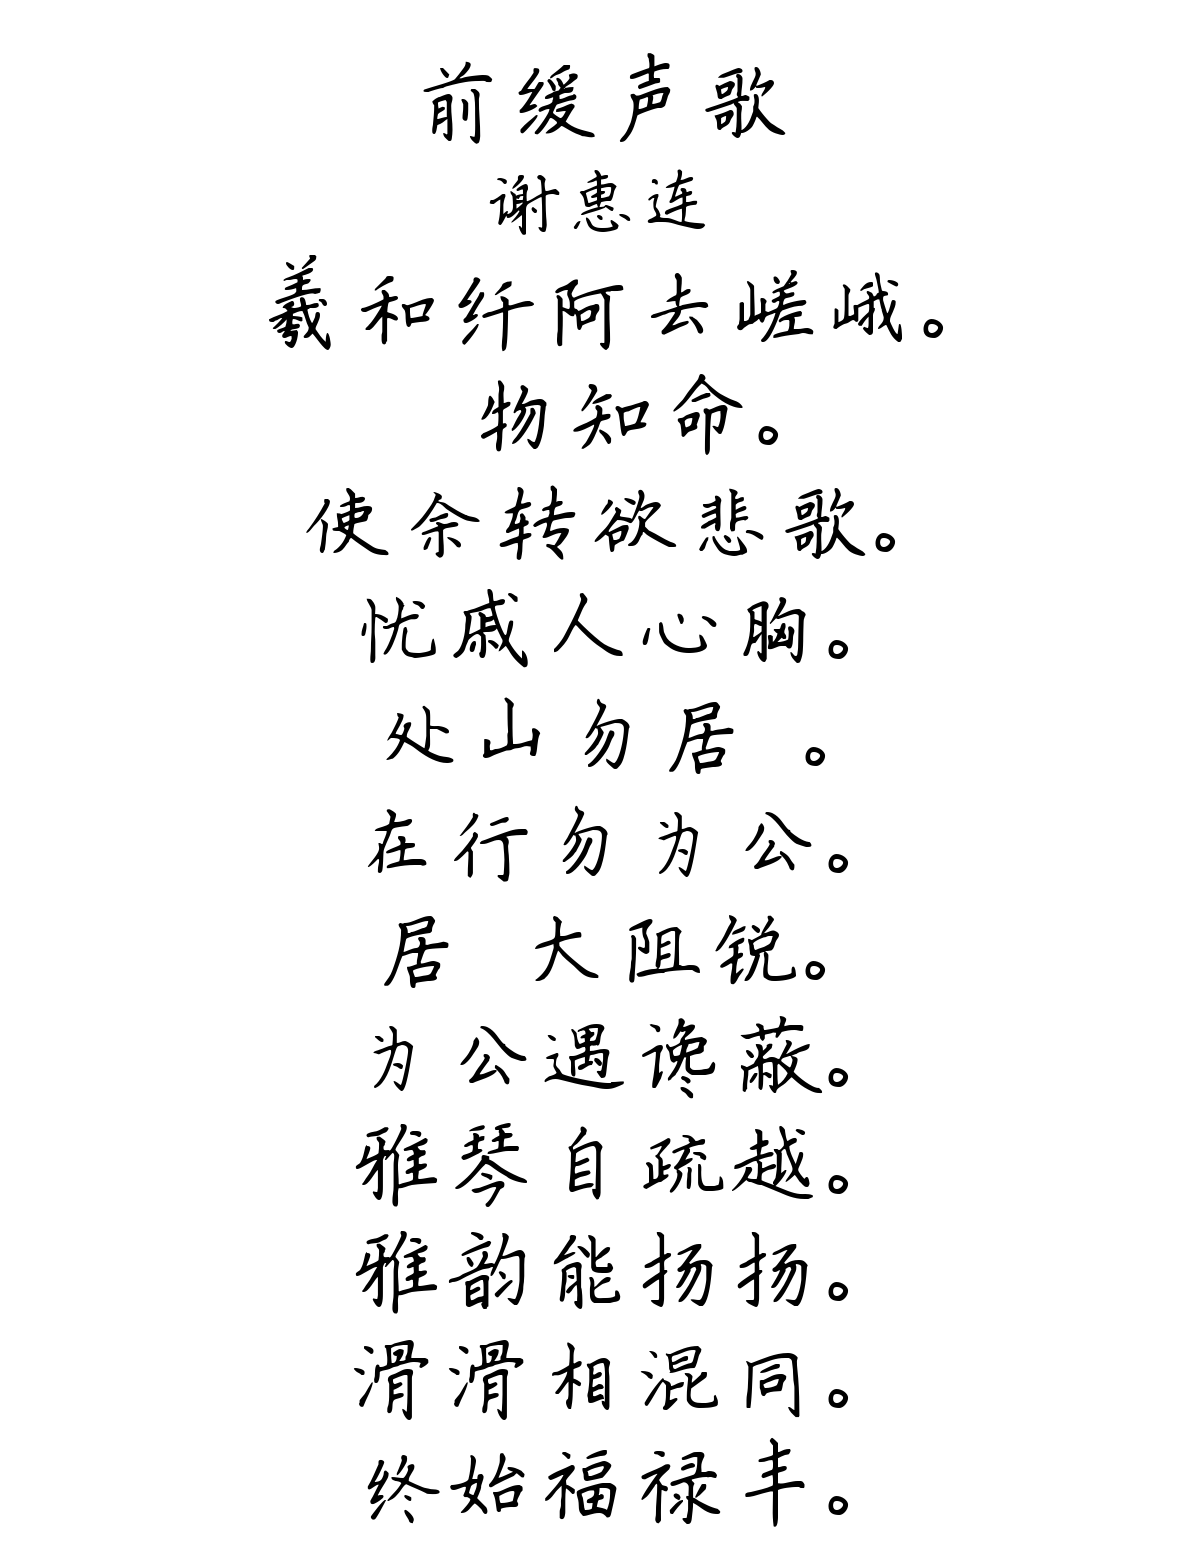 前缓声歌
谢惠连
羲和纤阿去嵯峨。
物知命。
使余转欲悲歌。
忧戚人心胸。
处山勿居 。
在行勿为公。
居 大阻锐。
为公遇谗蔽。
雅琴自疏越。
雅韵能扬扬。
滑滑相混同。
终始福禄丰。